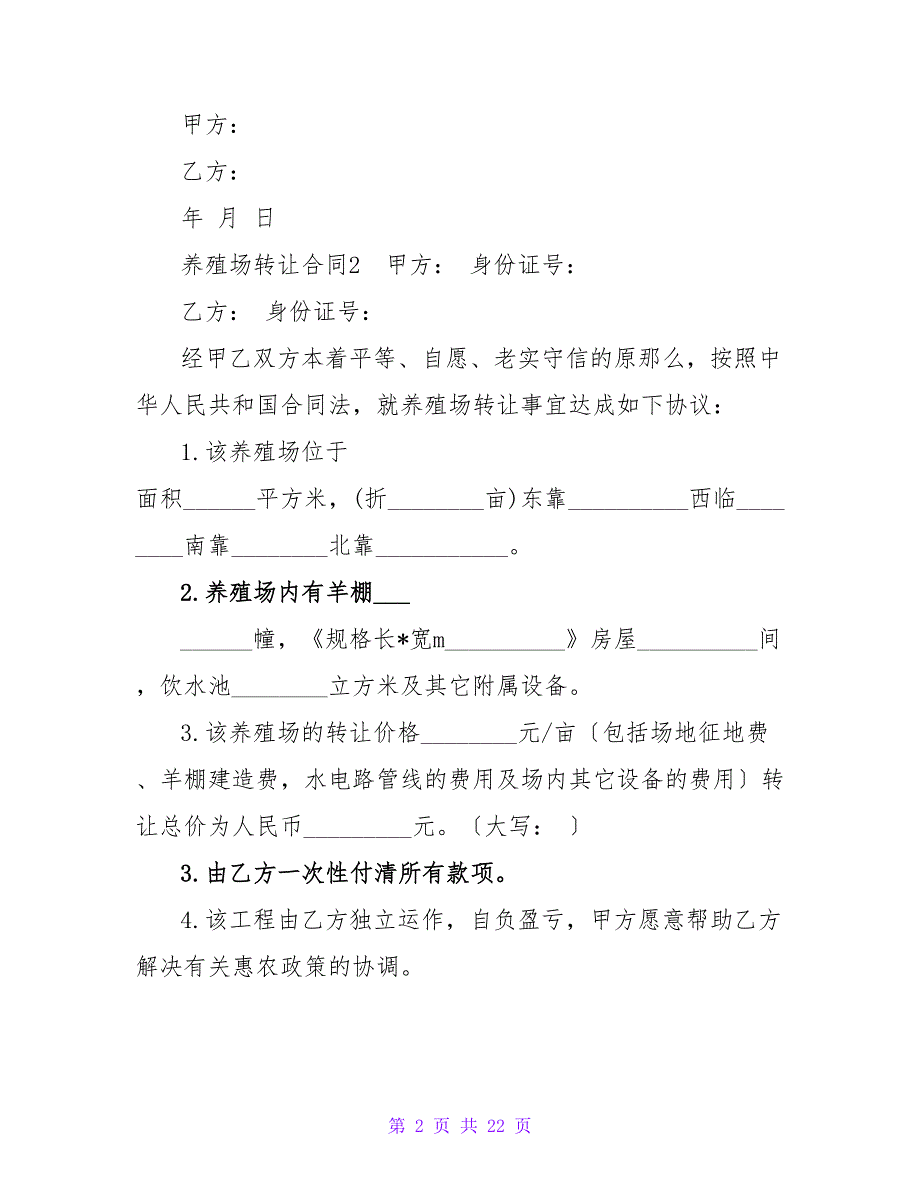 甲方：
乙方：
年 月 日
养殖场转让合同2 甲方： 身份证号：
乙方： 身份证号：
经甲乙双方本着平等、自愿、老实守信的原那么，按照中
华人民共和国合同法，就养殖场转让事宜达成如下协议：
1.该养殖场位于
面积______平方米，(折________亩)东靠__________西临____
____南靠________北靠___________。
2.养殖场内有羊棚___
______幢，《规格长*宽m__________》房屋__________间
，饮水池________立方米及其它附属设备。
3.该养殖场的转让价格________元/亩〔包括场地征地费
、羊棚建造费，水电路管线的费用及场内其它设备的费用〕转
让总价为人民币_________元。〔大写： 〕
3.由乙方一次性付清所有款项。
4.该工程由乙方独立运作，自负盈亏，甲方愿意帮助乙方
解决有关惠农政策的协调。
第 2 页 共 22 页